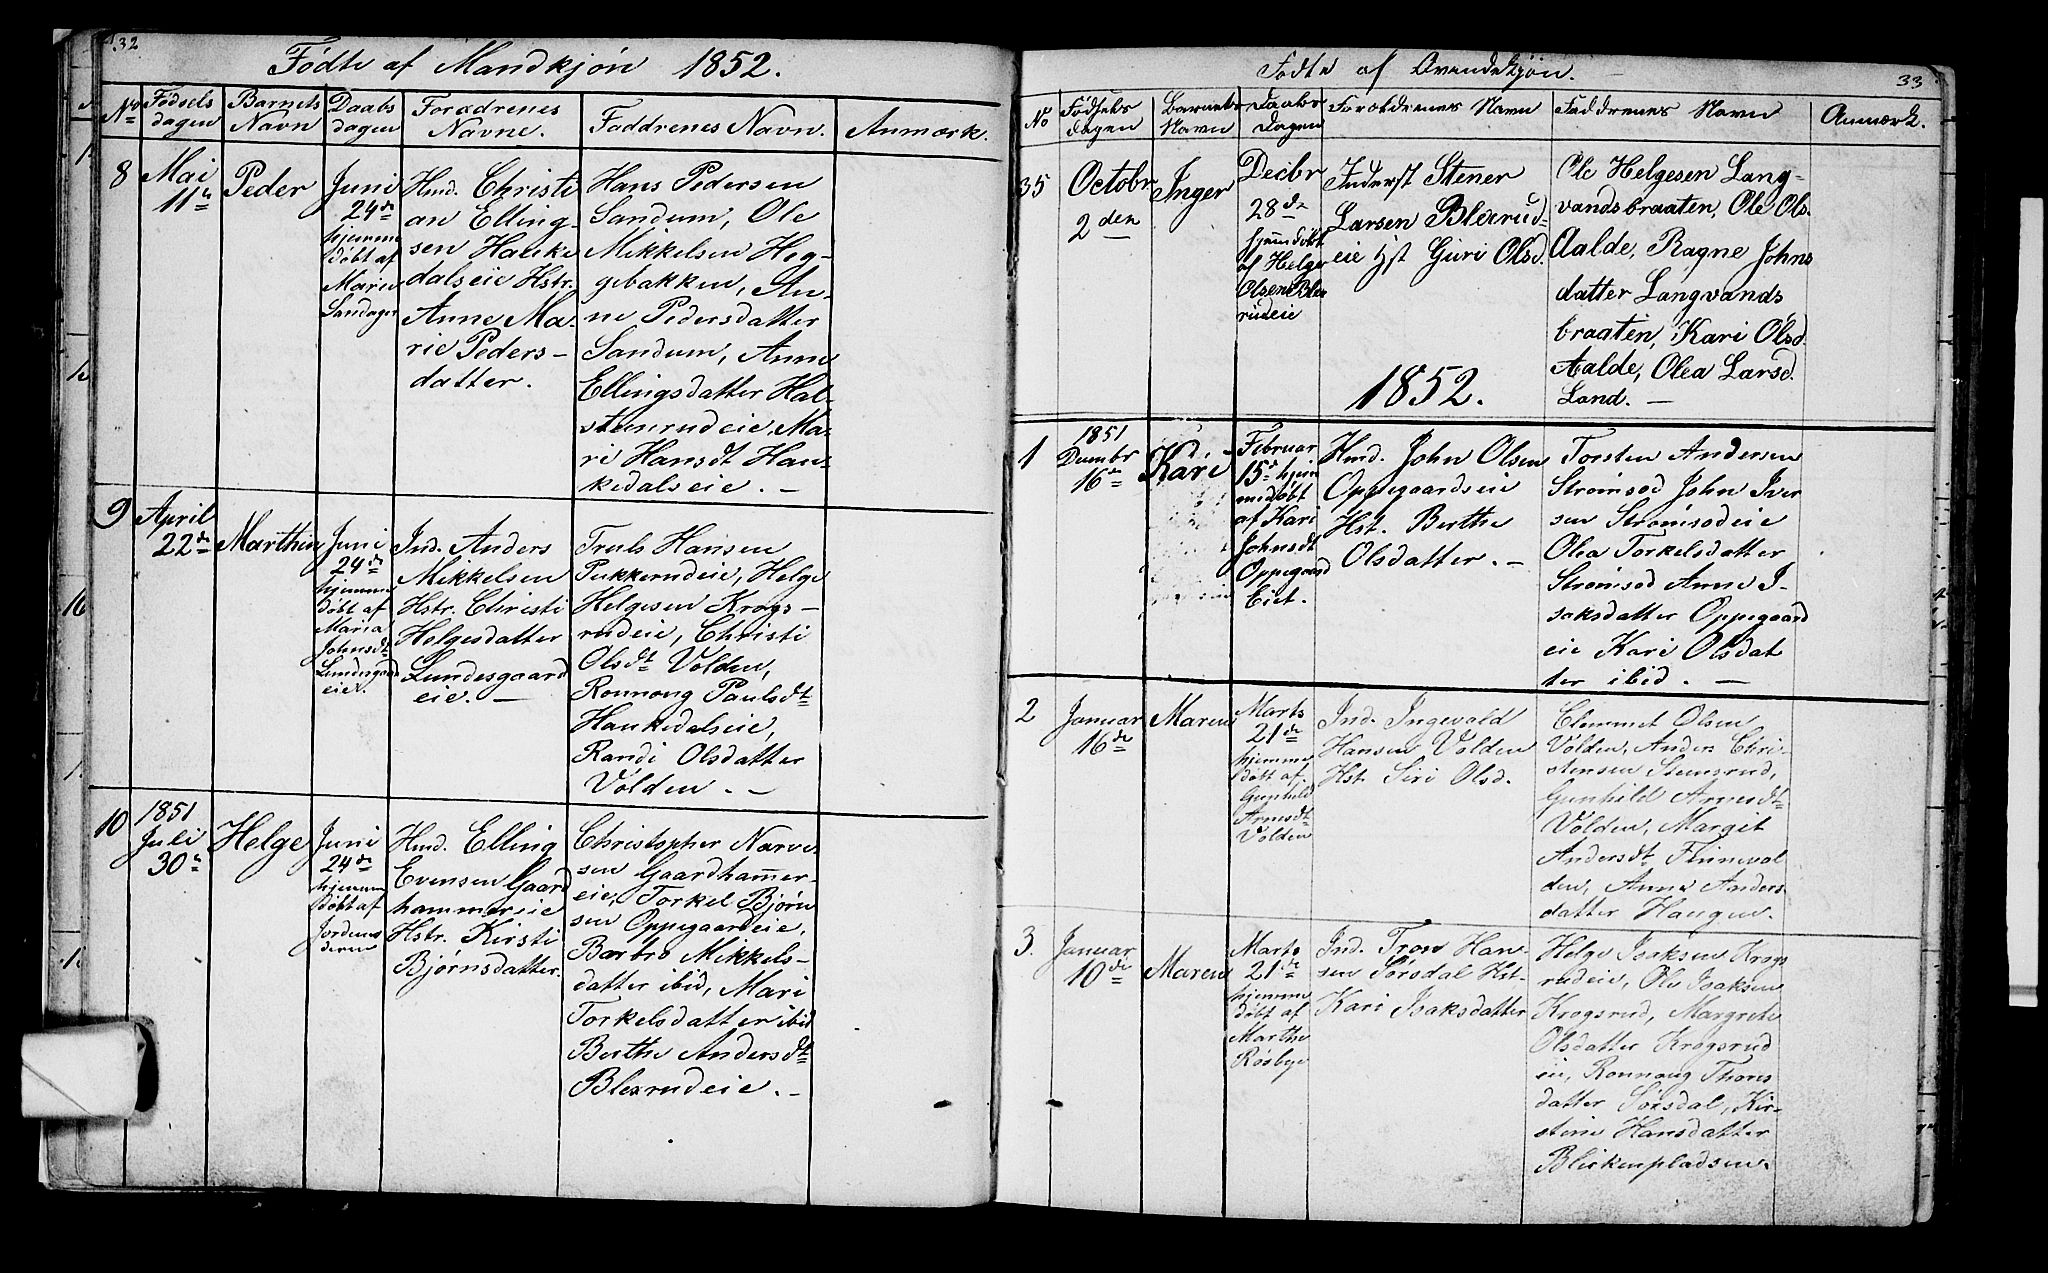 32
Fødte af Mandkjøn 1852.
No
Fødsels
dagen
Barnets
Navn
Daabs
dagen
Forædrenes
Navne.
Faddrenes Navn.
Anmærk.
8
Mai
11te
Peder
Juni
24de
hjemme
døbt af
Maren
Sandager
Hmd. Christi
an Elling-
sen Hauke
dalseie Hstr.
Anne Ma-
rie Peders-
datter.
Hans Pedersen
Sandum, Ole
Mikkelsen Heg-
gebakken, An-
ne Pedersdatter
Sandum, Anne
Ellingsdatter Hal-
stenrudeie, Ma-
ri Hansdt Hau-
kedalseie. -
9
April
22de
Marthin
Juni
24de
hjemme
døbt af
Maria
Johnsdt
Lundesgaard
eie.
Ind. Anders
Mikkelsen
Hstr. Christi
Helgesdatter
Lundesgaard
eie. -
Truls Hansen
Pukkerudeie, Helge
Helgesen Krogs-
rudeie, Christi
Olsdt Volden,
Ronnoug Paulsdt
Haukedalseie,
Randi Olsdatter
Volden. -
10
1851
Juli
30te
Helge
Juni
24de
hjemme
døbt af
Jordemo
deren
Hmd. Elling
Evensen Gaard
hammereie
Hstr. Kirsti
Bjørnsdatter.
Christopher Narve-
sen Gaardhammer-
eie, Torkel Bjørn
sen Oppegaardeie,
Barbro Mikkels-
datter ibid, Mari
Torkelsdatter ibid
Berthe Andersdt
Blexrudeie. -
33
Fødte af Qvindekjøn.
No
Fødsels
dagen
Barnets
Navn
Daabs
Dagen
Forældrenes Navn
Faddrenes Navn
Anmærk.
35
Octobr
2den
Inger
Decbr
28de
hjemdøbt
af Helge
Olsen Blex
rudeie
Inderst Stener
Larsen Blexrud-
eie Hst Guri Olsd.
Ole Helgesen Lang-
vandsbraaten, Ole Ols.
Aalde, Ragne Johns
datter Langvands
braaten, Kari Olsd.
Aalde, Olea Larsd.
Land. -
1852.
1
1851
Decmbr
16de
Kari
Februar
15de hjem
medøbt
af Kari
Johnsdt
Oppegaard
Eiet.
Hmd. John Olsen
Oppegaardseie
Hst. Berthe
Olsdatter. -
Torsten Andersen
Strømsod John Iver
sen Strømsodeie
Olea Torkelsdatter
Strømsod Anne I-
saksdatter Oppegaard
eie Kari Olsdat
ter ibid. -
2
Januar
16de
Maren
Marts
21de
hjemme
døbt af
Gunhild
Arnesdt
Volden
Ind. Ingevald
Hansen Volden
Hst. Siri Olsd.
Clemmet Olsen
Volden, Anders Chri-
stensen Stensrud,
Gunhild Arnesdt
Volden, Margit
Andersdt Finnevol
den, Anne Anders
datter Haugen.
3.
Januar
10de
Maren
Marts
21de
hjemme
døbt af
Marthe
Røsbye
Ind. Tron Han-
sen Sørsdal Hst-
Kari Isaksdatter
Helge Isaksen Krogs
rudeie, Ole Isaksen
Krogsrud, Margrete
Olsdatter Krogsrud
eie, Ronnoug Thores
datter Sørsdal, Kir-
stine Hansdatter
Blekenpladsen.